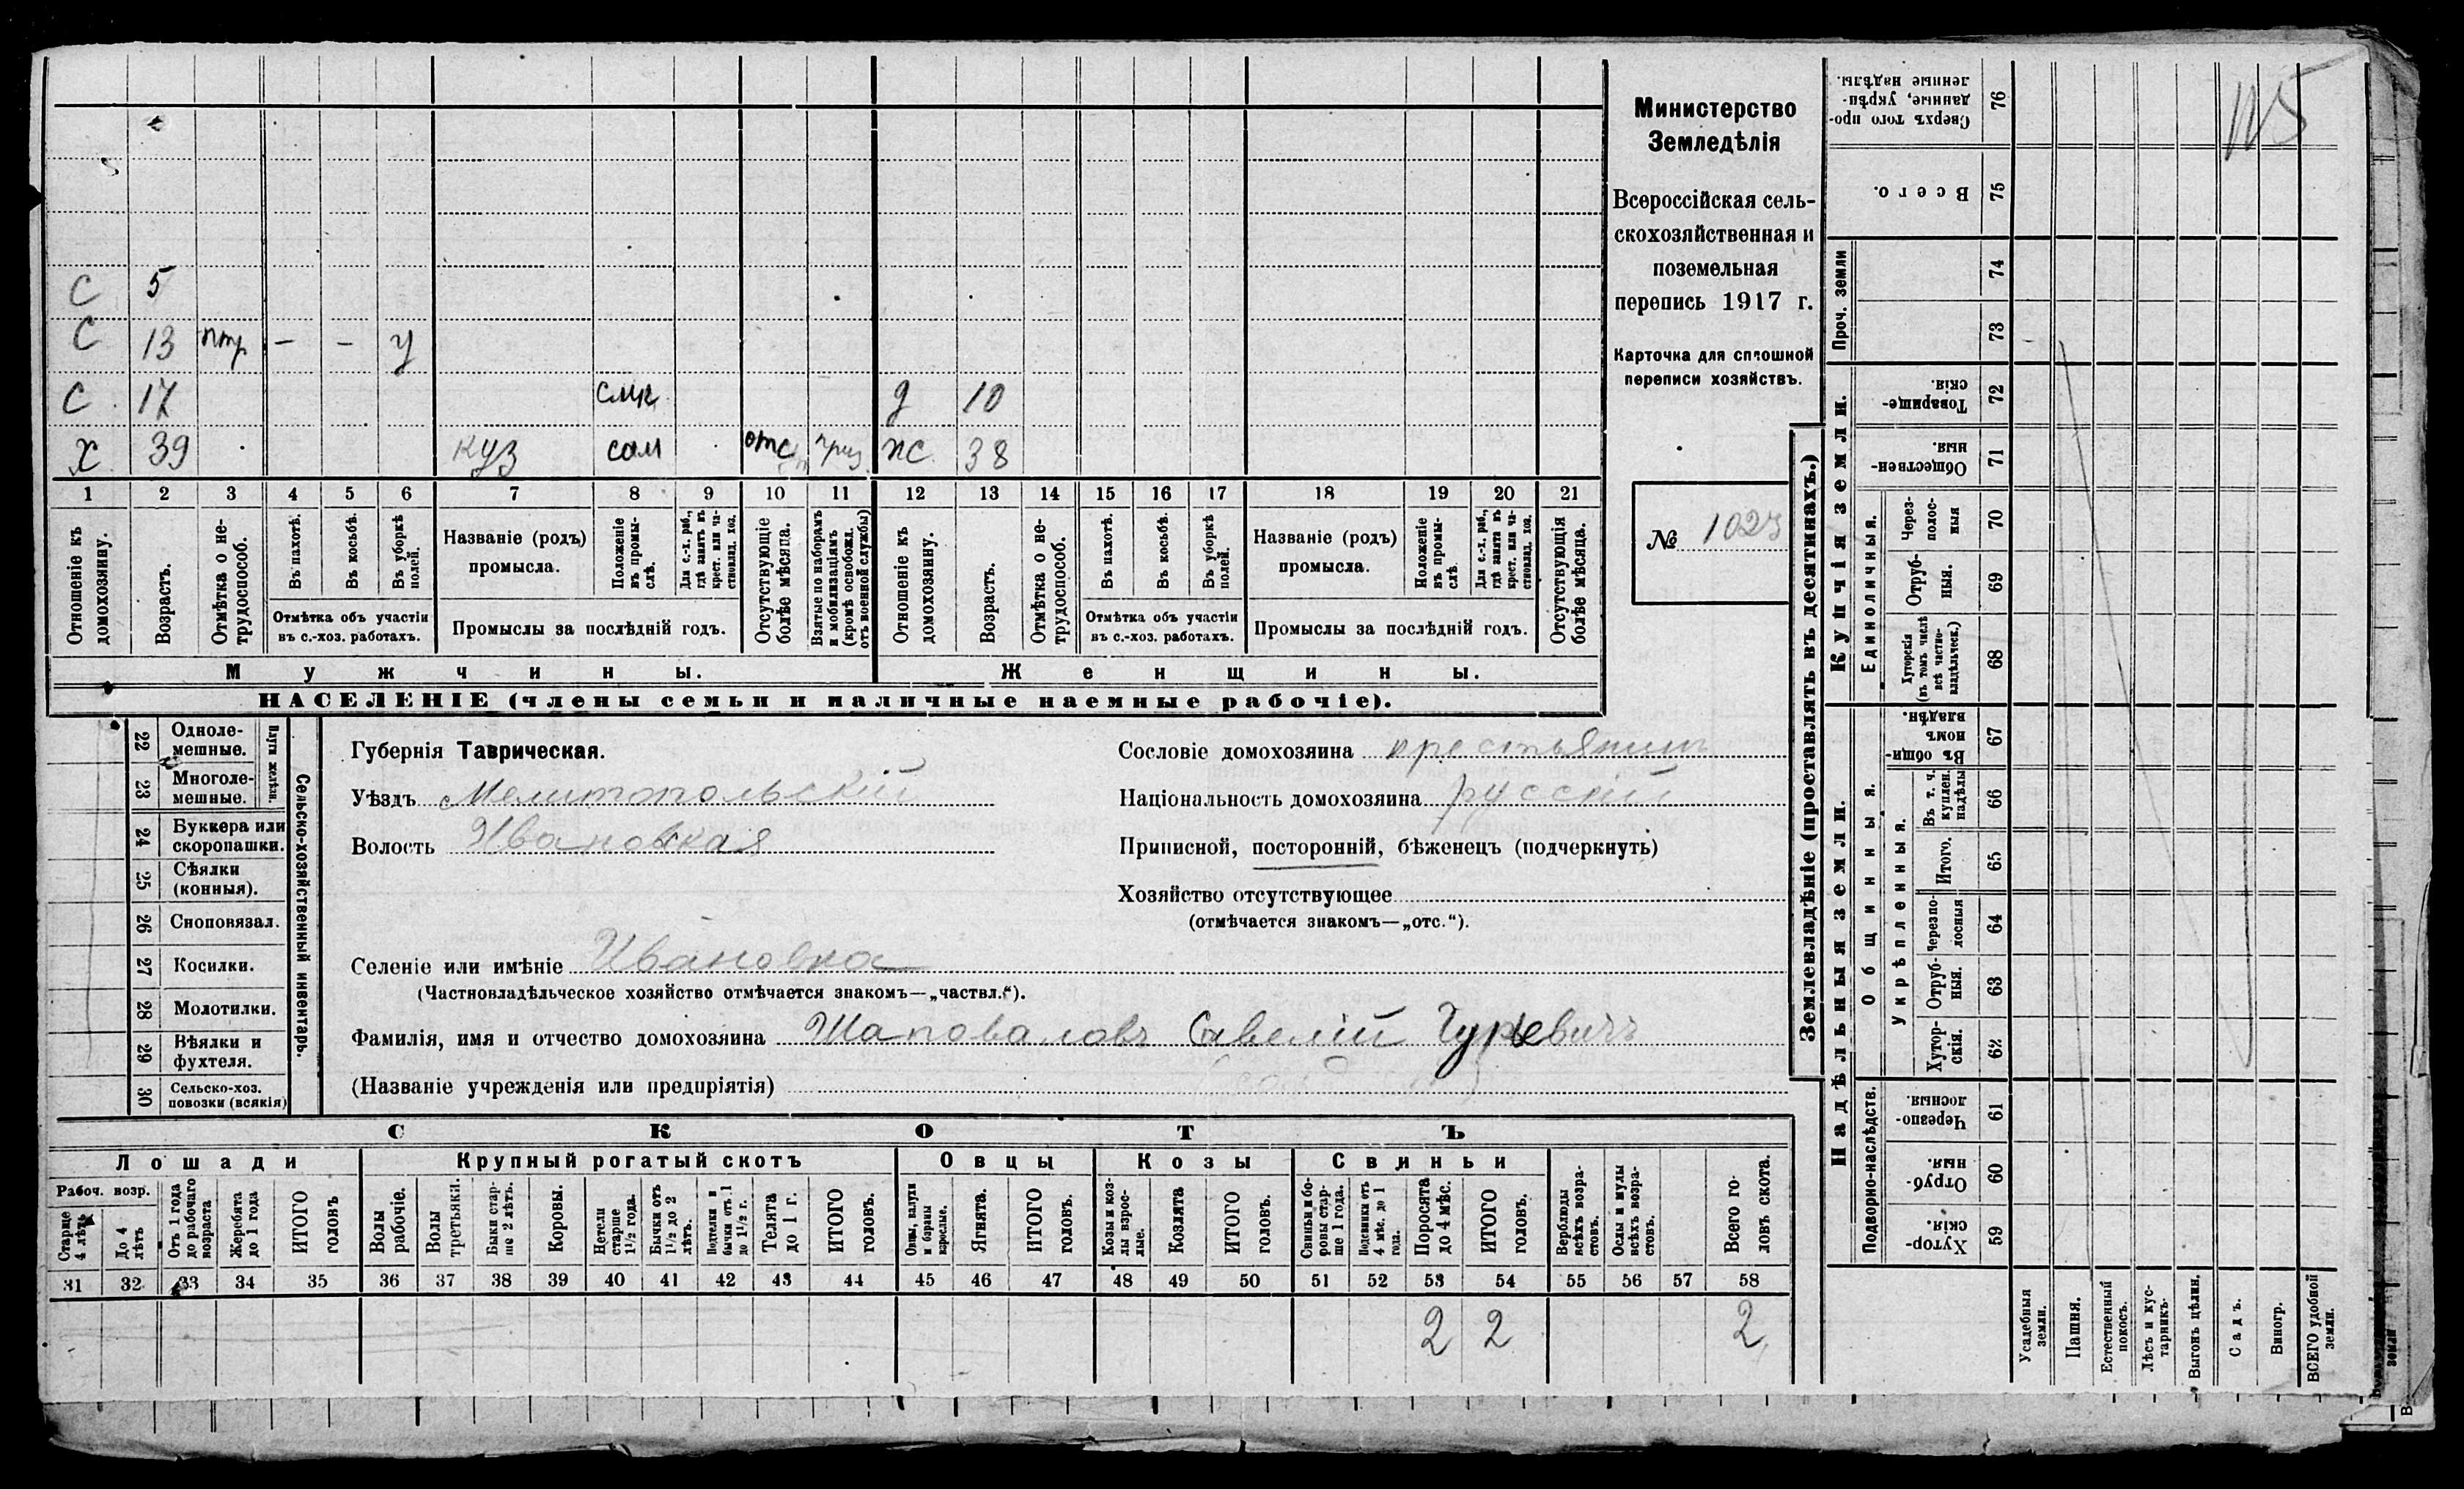 С 5
С 13 птр — — у
С 17 смк д 10
Х 39 куз сам отс жс 38
1 2 3 4 5 6 7 8 9 10 11 12 13 14 15 16 17 18 19 20 21
Отношеніе къ домохозяину.
Возрастъ.
Отмѣтка о нетрудоспособ.
Въ пахотѣ.
Въ косьбѣ.
Въ уборкѣ полей.
Отмѣтка объ участіи
въ с.-хоз. работахъ.
Названіе (родъ)
промысла.
Положеніе въ промыслѣ.
Для с.-х. раб., гдѣ занятъ въ крест. или частновлад. хоз.
Промыслы за послѣдній годъ.
Отсутствующіе болѣе мѣсяца.
Взятые по наборамъ и мобилизаціямъ (кромѣ освобожд. отъ военной службы)
Отношеніе къ домохозяину.
Возрастъ.
Отмѣтка о нетрудоспособ.
Въ пахотѣ.
Въ косьбѣ.
Въ уборкѣ полей.
Отмѣтка объ участіи
въ с.-хоз. работахъ.
Названіе (родъ)
промысла.
Положеніе въ промыслѣ.
Для с.-х. раб., гдѣ занята въ крест. или частновлад. хоз.
Промыслы за послѣдній годъ.
Отсутствующія болѣе мѣсяца.
Мужчины. Женщины.
НАСЕЛЕНІЕ (члены семьи и наличные наемные рабочіе).
Министерство
Земледѣлія
Всероссійская сель-
скохозяйственная и
поземельная
перепись 1917 г.
Карточка для сплошной
переписи хозяйствъ.
№ 1023
22 Одноле-
мешные.
23 Многоле-
мешные.
Плуги желѣзн.
24 Буккера или
скоропашки.
25 Сѣялки
(конныя).
26 Сноповязал.
27 Косилки.
28 Молотилки.
29 Вѣялки и
фухтеля.
30 Сельско-хоз.
повозки (всякія)
Сельско-хозяйственный инвентарь.
Губернія Таврическая.
Уѣздъ Мелитопольскій
Волость Ивановская
Сословіе домохозяина крестьянинъ
Національность домохозяина русскій
Приписной, посторонній, бѣженецъ (подчеркнуть)
Хозяйство отсутствующее
(отмѣчается знакомъ—„отс.“).
Селеніе или имѣніе Ивановка
(Частновладѣльческое хозяйство отмѣчается знакомъ—„частвл.“).
Фамилія, имя и отчество домохозяина Шаповаловъ Савелій Гурьевичъ
(Названіе учрежденія или предпріятія)
СКОТЪ
Лошади Крупный рогатый скотъ Овцы Козы Свиньи
Рабоч. возр.
Старше 4 лѣтъ
До 4 лѣтъ
Отъ 1 года до рабочаго возраста
Жеребята до 1 года
ИТОГО головъ
Волы рабочіе.
Волы третьяки.
Быки старше 2 лѣтъ.
Коровы.
Нетели старше 1½ года.
Бычки отъ 1½ до 2 лѣтъ.
Подтелки и бычки отъ 1 до 1½ г.
Телята до 1 г.
ИТОГО головъ.
Овцы, валухи и бараны взрослые.
Ягнята.
ИТОГО головъ.
Козы и козлы взрослые.
Козлята
ИТОГО головъ.
Свиньи и боровы старше 1 года.
Подсвинки отъ 4 мѣс. до 1 года.
Поросята до 4 мѣс.
ИТОГО головъ.
Верблюды всѣхъ возрастовъ.
Ослы и мулы всѣхъ возрастовъ.
Всего головъ скота.
31 32 33 34 35 36 37 38 39 40 41 42 43 44 45 46 47 48 49 50 51 52 53 54 55 56 57 58
2 2 2
Землевладѣніе (проставлять въ десятинахъ.)
Купчія земли.
Надѣльныя земли.
Проч. земли
Единоличныя.
Общинныя.
Укрѣпленныя.
Подворно-наслѣдств.
Сверхъ того про-
данные, укрѣп-
ленные надѣлы. 76
Всего. 75
74
73
Товарище-
скія. 72
Обществен-
ныя. 71
Через-
полос-
ныя 70
Отруб-
ныя. 69
Хуторскія (въ томъ числѣ всѣ частно-владѣльческ.) 68
Въ общин-
номъ
владѣн. 67
Въ т. ч. куплен. надѣлы 66
Итого. 65
Черезпо-
лосныя 64
Отруб-
ныя. 63
Хутор-
скія. 62
Черезпо-
лосныя. 61
Отруб-
ныя. 60
Хутор-
скія. 59
Усадебныя земли.
Пашня.
Естественный покосъ.
Лѣсъ и кус-
тарникъ.
Выгонъ цѣлин.
Садъ.
Виногр.
ВСЕГО удобной земли.